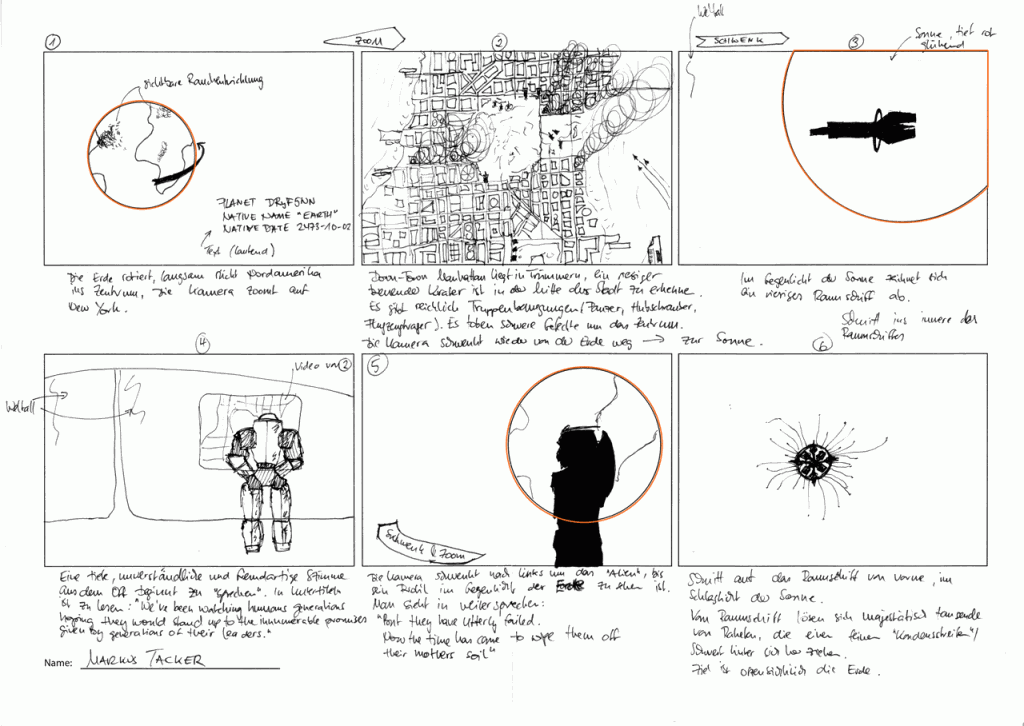 1
sichtbare Rauchentwicklung
PLANET DRyF5NN
NATIVE NAME "EARTH"
NATIVE DATE 2473-10-02
Text (laufend)
Die Erde rotiert, langsam rückt Nordamerika
ins Zentrum, die Kamera zoomt auf
New York.
ZOOM
2
Down-Town Manhattan liegt in Trümmern, ein riesiger
Krater ist in der Mitte der Stadt zu erkennen.
Es gibt reichlich Truppenbewegungen (Panzer, Hubschrauber,
Flugzeugträger). Es toben schwere Gefechte um das Zentrum.
Die Kamera schwenkt wieder von der Erde weg → zur Sonne.
Weltall
SCHWENK
3
Sonne, tief rot
glühend
Im Gegenlicht der Sonne zeichnet sich
ein riesiges Raumschiff ab.
Schnitt ins innere des
Raumschiffes
4
Weltall
Video von 2
Eine tiefe, unverständliche und fremdartige Stimme
aus dem Off beginnt zu "sprechen". In Untertiteln
ist zu lesen: "We've been watching humans generations
hoping they would stand up to the innumerable promises
given by generations of their leaders."
5
Schwenk & Zoom
Die Kamera schwenkt nach links um das "Alien", bis
sein im Gegenlicht der Erde zu sehen ist.
Man sieht in weiter sprechen:
"But they have utterly failed.
Now the time has come to wipe them off
their mothers soil"
6
Schnitt auf das Raumschiff von vorne, im
Schlaglicht der Sonne.
Vom Raumschiff lösen sich majestätisch tausende
von Raketen, die einen feinen "Kondensstreifen"/
Schweif hinter sich her ziehen.
Ziel ist offensichtlich die Erde.
Name: MARKUS TACKER